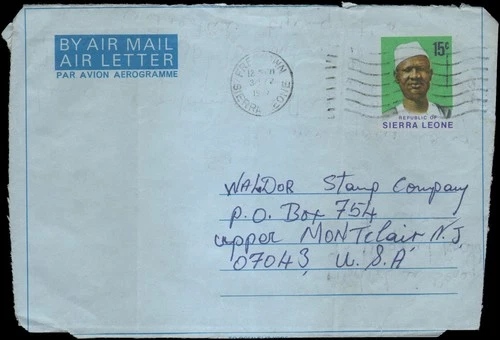 BY AIR MAIL
AIR LETTER
PAR AVION AEROGRAMME
FREETOWN
SIERRA LEONE
15c
REPUBLIC OF
SIERRA LEONE
WALDOR Stamp Company
P.O. Box 754
upper MONTclair N.J.
07043, U.S.A